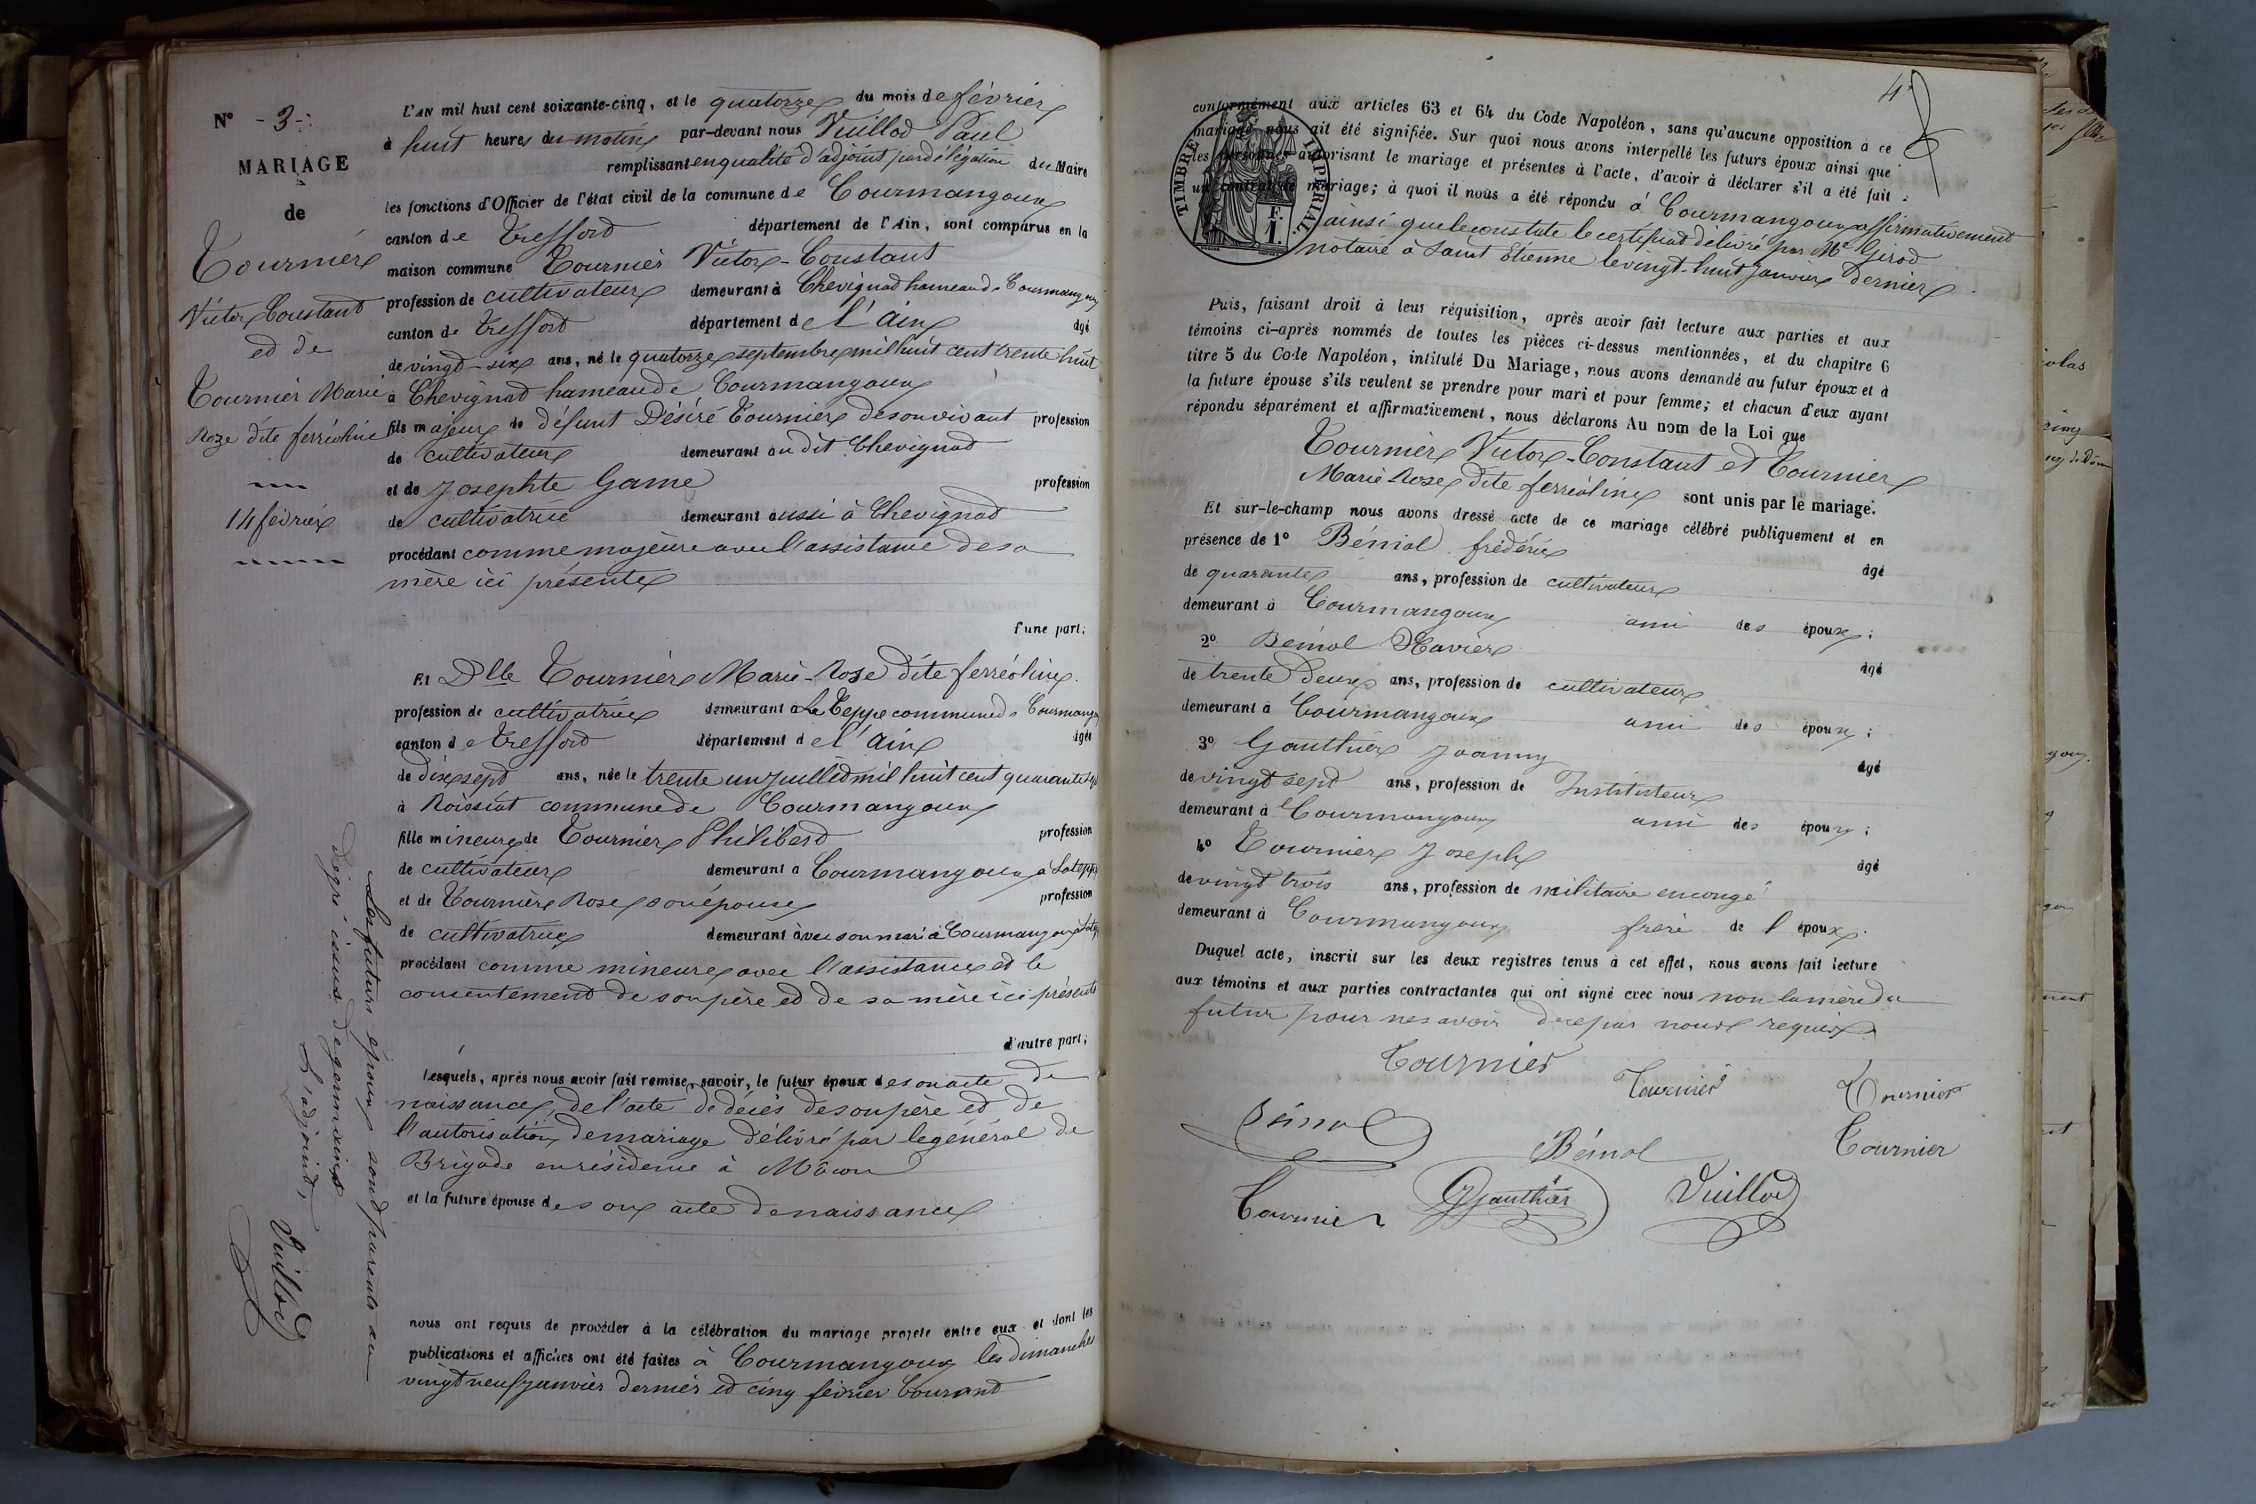 N° - 3 -
MARIAGE
de
Tournier
Victor Constant
et de
Tournier Marie
Roze dite ferréoline
14 février
L'AN mil huit cent soixante-cinq, et le quatorze du mois de février
à huit heures du matin par-devant nous Vuillod Paul
remplissant en qualité d'adjoint par délégation du Maire
les fonctions d'Officier de l'état civil de la commune de Courmangoux
canton de Treffort département de l'Ain, sont comparus en la
maison commune Tournier Victor-Constant
profession de cultivateur demeurant à Chevignat hameau de Courmangoux
canton de Treffort département de l'ain âgé
de vingt-six ans, né le quatorze septembre mil huit cent trente huit
à Chevignat hameau de Courmangoux
fils majeur de défunt Désiré Tournier de son vivant profession
de cultivateur demeurant au dit Chevignat
et de Josephte Game profession
de cultivatrice demeurant aussi à Chevignat
procédant comme majeur avec l'assistance de sa
mère ici présente
d'une part;
Et Dlle Tournier Marie-Rose dite ferréoline
profession de cultivatrice demeurant à La Teppe commune de Courmangoux
canton de Treffort département de l'ain âgée
de dix sept ans, née le trente un juillet mil huit cent quarante sept
à Roissiat commune de Courmangoux
fille mineure de Tournier Philibert profession
de cultivateur demeurant à Courmangoux à Lateppe
et de Tournier Rose son épouse profession
de cultivatrice demeurant avec son mari à Courmangoux à Lateppe
procédant comme mineure avec l'assistance et le
consentement de son père et de sa mère ici présents
d'autre part;
Lesquels, après nous avoir fait remise, savoir, le futur époux de son acte de
naissance, de l'acte de décès de son père et de
l'autorisation de mariage délivré par le général de
Brigade en résidence à Mâcon
et la future épouse de son acte de naissance
nous ont requis de procéder à la célébration du mariage projeté entre eux et dont les
publications et affiches ont été faites à Courmangoux les dimanches
vingt neuf janvier dernier et cinq février Courant
Les futurs époux sont parents au
degré issus de germains
L'adjoint,
Vuillod
4
conformément aux articles 63 et 64 du Code Napoléon, sans qu'aucune opposition à ce
mariage nous ait été signifiée. Sur quoi nous avons interpellé les futurs époux ainsi que
les personnes autorisant le mariage et présentes à l'acte, d'avoir à déclarer s'il a été fait
un contrat de mariage; à quoi il nous a été répondu à Courmangoux affirmativement
ainsi que le constate le certificat délivré par Me Girod
notaire à Saint Etienne le vingt-huit janvier dernier
TIMBRE IMPERIAL
F.
1.
Puis, faisant droit à leur réquisition, après avoir fait lecture aux parties et aux
témoins ci-après nommés de toutes les pièces ci-dessus mentionnées, et du chapitre 6
titre 5 du Code Napoléon, intitulé Du Mariage, nous avons demandé au futur époux et à
la future épouse s'ils veulent se prendre pour mari et pour femme; et chacun d'eux ayant
répondu séparément et affirmativement, nous déclarons Au nom de la Loi que
Tournier Victor-Constant et Tournier
Marie Rose dite ferréoline sont unis par le mariage.
Et sur-le-champ nous avons dressé acte de ce mariage célébré publiquement et en
présence de 1° Béniol frédéric
âgé
de quarante ans, profession de cultivateur
demeurant à Courmangoux ami des époux;
2° Béniol Xavier
âgé
de trente deux ans, profession de cultivateur
demeurant à Courmangoux ami des époux;
3° Gauthier Joanny
âgé
de vingt sept ans, profession de Instituteur
demeurant à Courmangoux ami des époux;
4° Tournier Joseph
âgé
de vingt trois ans, profession de militaire en congé
demeurant à Courmangoux frère de l'époux.
Duquel acte, inscrit sur les deux registres tenus à cet effet, nous avons fait lecture
aux témoins et aux parties contractantes qui ont signé avec nous non la mère du
futur pour ne savoir de ce par nous requise
Tournier
Tournier
Tournier
Béniol
Béniol
Tournier
Tournier
Gauthier
Vuillod